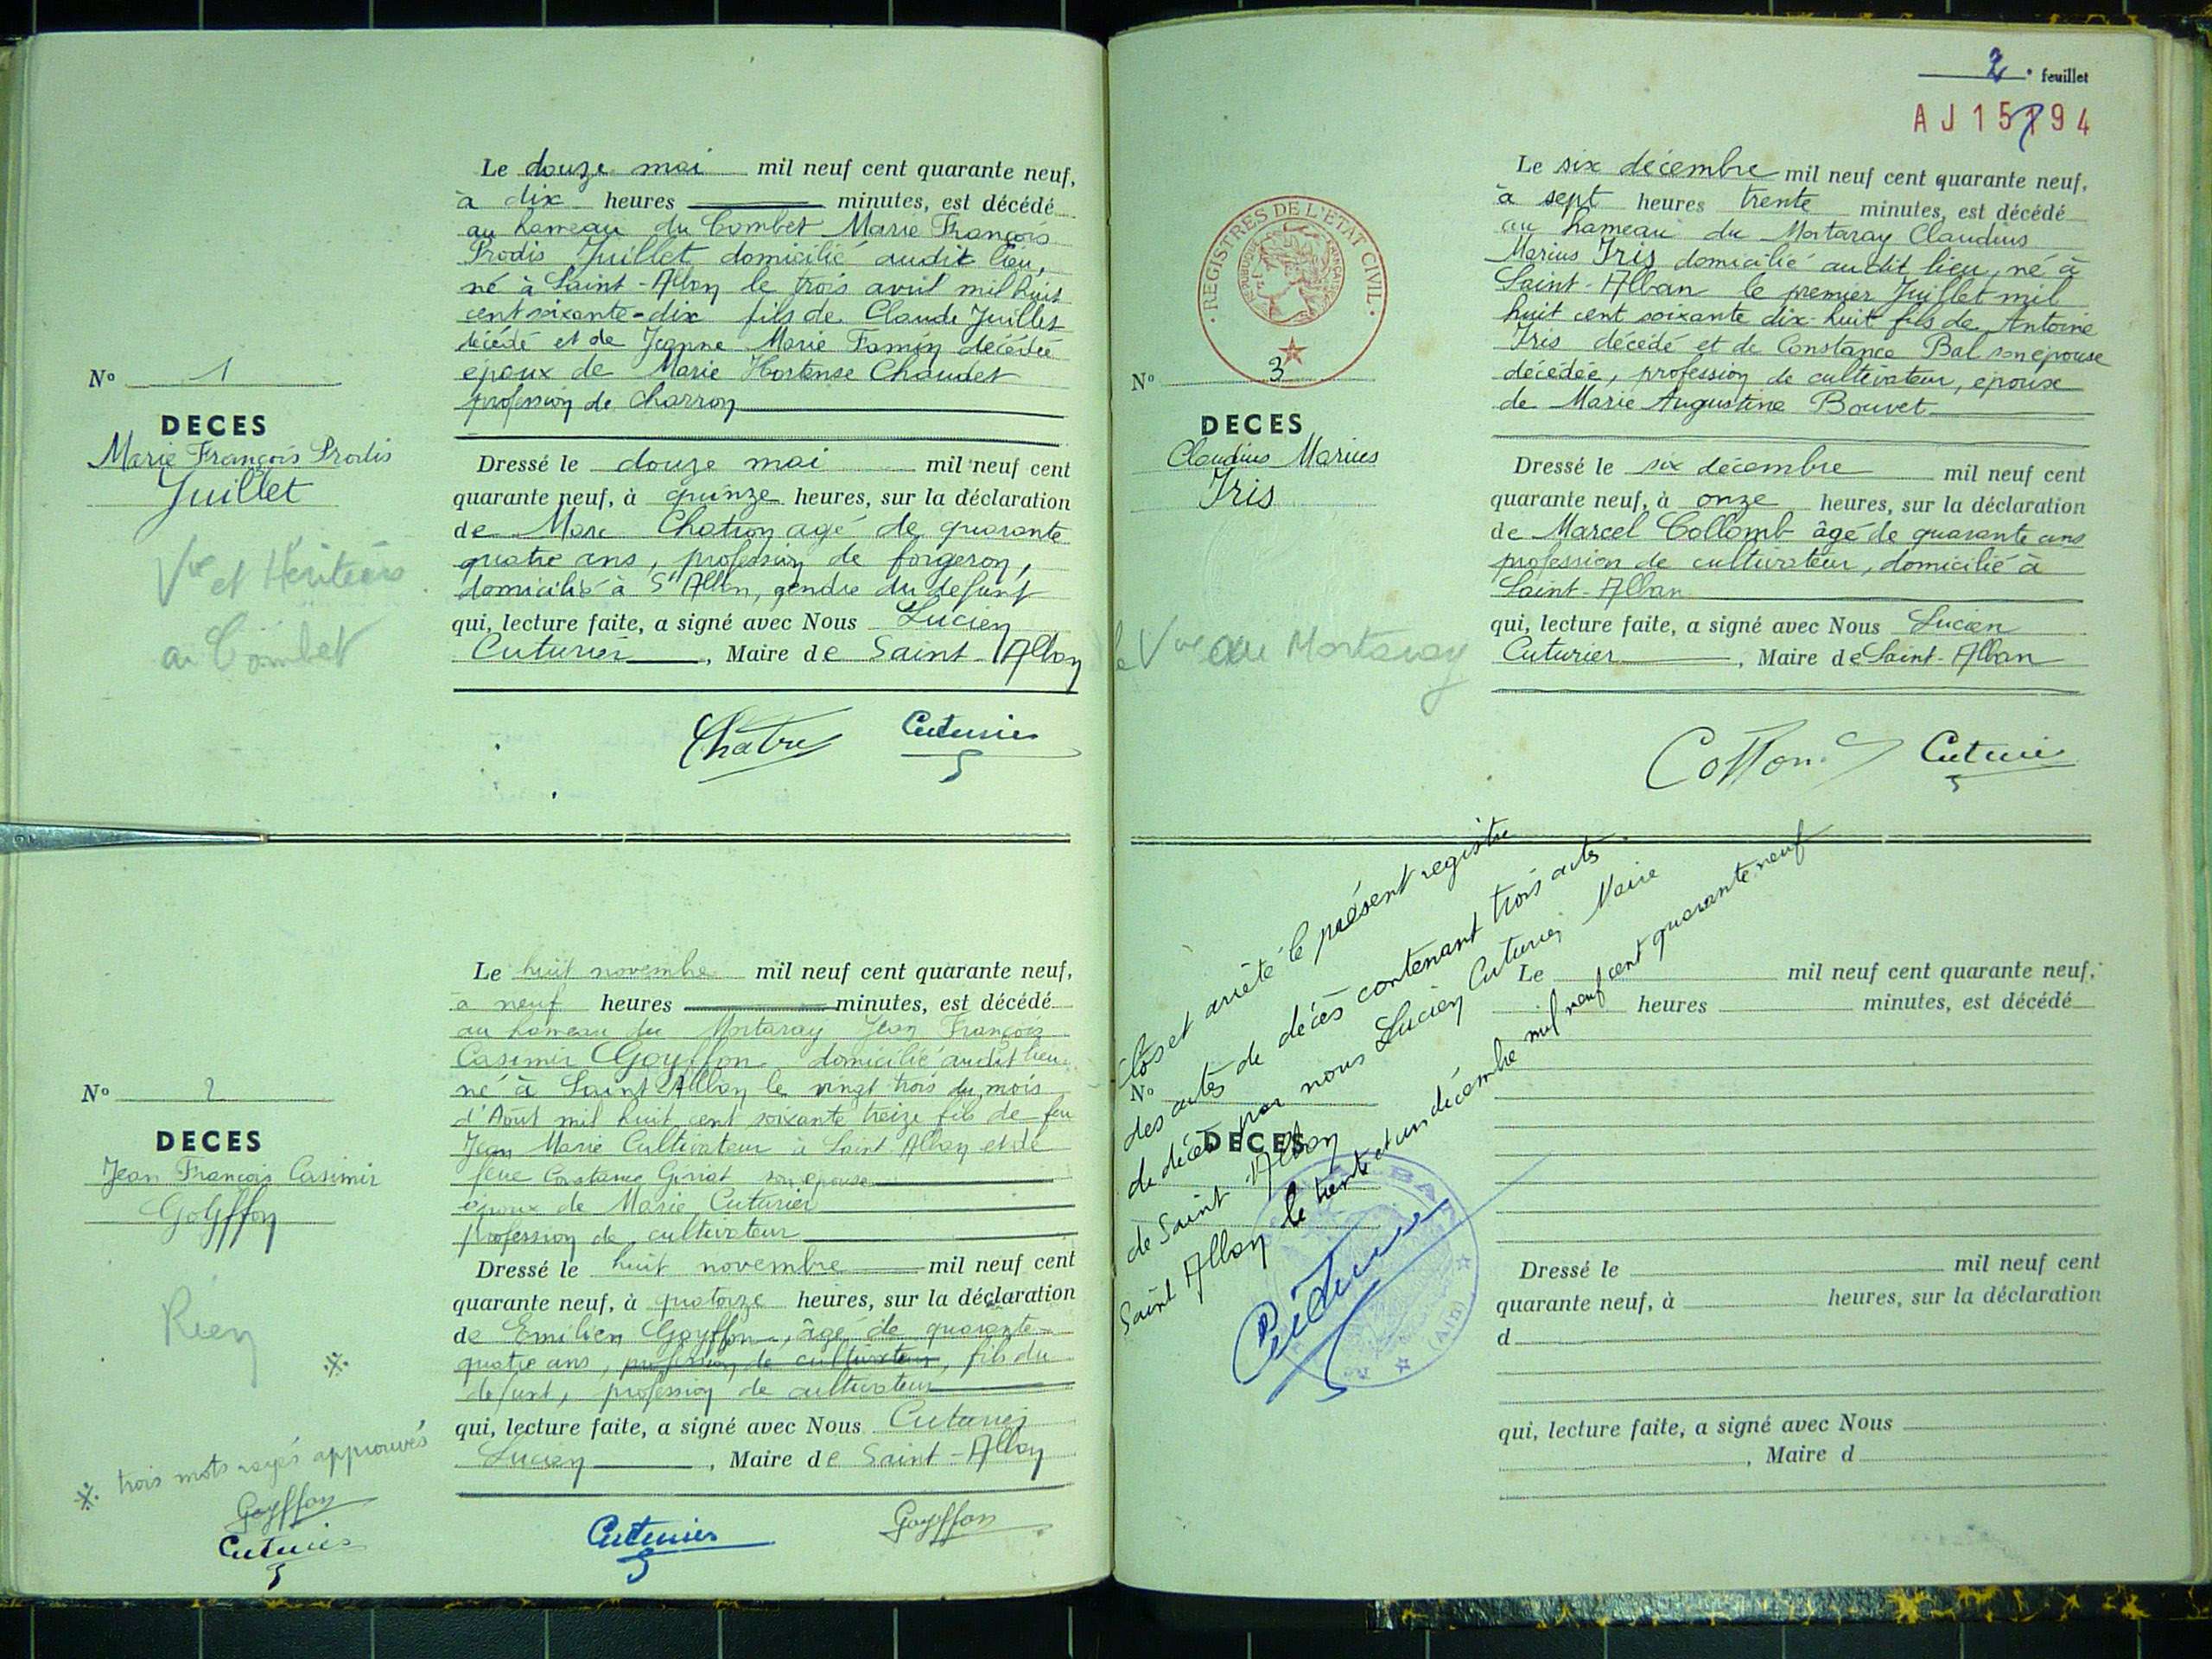 N° 1
DECES
Marie François Prodis
Juillet
Vve et Héritiers
au Combet
Le douze mai mil neuf cent quarante neuf,
à dix heures minutes, est décédé
au hameau du Combet Marie François
Prodis Juillet domicilié audit lieu,
né à Saint-Alban le trois avril mil huit
cent soixante-dix fils de Claude Juillet
décédé et de Jeanne Marie Famin décédée
époux de Marie Hortense Chaudet
profession de charron
Dressé le douze mai mil neuf cent
quarante neuf, à quinze heures, sur la déclaration
de Marc Chatron agé de quarante
quatre ans, profession de forgeron,
domicilié à St Alban, gendre du defunt
qui, lecture faite, a signé avec Nous Lucien
Cuturier, Maire de Saint-Alban
Cuturier
N° 2
DECES
Jean François Casimir
Goyffon
Rien
※
※ trois mots rayés approuvés
Goyffon
Cuturier
Le huit novembre mil neuf cent quarante neuf,
à neuf heures minutes, est décédé
au hameau du Mortaray Jean François
Casimir Goyffon domicilié audit lieu
né à Saint Alban le vingt trois du mois
d'Août mil huit cent soixante treize fils de feu
Jean Marie Cultivateur à Saint Alban et de
feue Constance Giriat son épouse
époux de Marie Cuturier
profession de cultivateur
Dressé le huit novembre mil neuf cent
quarante neuf, à quatorze heures, sur la déclaration
de Emilien Goyffon, âgé de quarante
quatre ans, profession de cultivateur, fils du
defunt, profession de cultivateur
qui, lecture faite, a signé avec Nous Cuturier
Lucien, Maire de Saint-Alban
Cuturier Goyffon
2. feuillet
AJ 15794
REGISTRES DE L'ETAT CIVIL
REPUBLIQUE FRANÇAISE
N° 3
DECES
Claudius Marius
Iris
Vve au Mortaray
Le six décembre mil neuf cent quarante neuf,
à sept heures trente minutes, est décédé
au hameau du Mortaray Claudius
Marius Iris domicilié audit lieu, né à
Saint-Alban le premier Juillet mil
huit cent soixante dix-huit fils de Antoine
Iris décédé et de Constance Bal son épouse
décédée, profession de cultivateur, époux
de Marie Augustine Bouvet
Dressé le six décembre mil neuf cent
quarante neuf, à onze heures, sur la déclaration
de Marcel Collomb âgé de quarante ans
profession de cultivateur, domicilié à
Saint-Alban
qui, lecture faite, a signé avec Nous Lucien
Cuturier, Maire de Saint-Alban
Cuturier
Clos et arrêté le présent registre
des actes de décès contenant trois actes
de décès par nous Lucien Cuturier Maire
de Saint Alban
Saint Alban le trente et un décembre mil neuf cent quarante neuf
Cuturier
(Ain)
N°
DECES
Le mil neuf cent quarante neuf,
heures minutes, est décédé
Dressé le mil neuf cent
quarante neuf, à heures, sur la déclaration
d
qui, lecture faite, a signé avec Nous
, Maire d